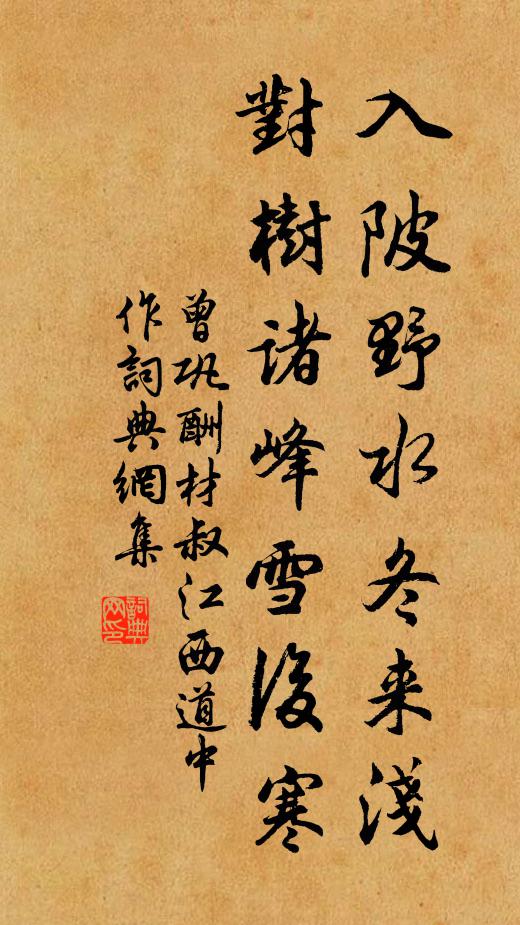 入陂野水冬来淺
對樹诸峰雪後寒
曾巩酬材叔江西道中
作詞典網集
詞典
网印